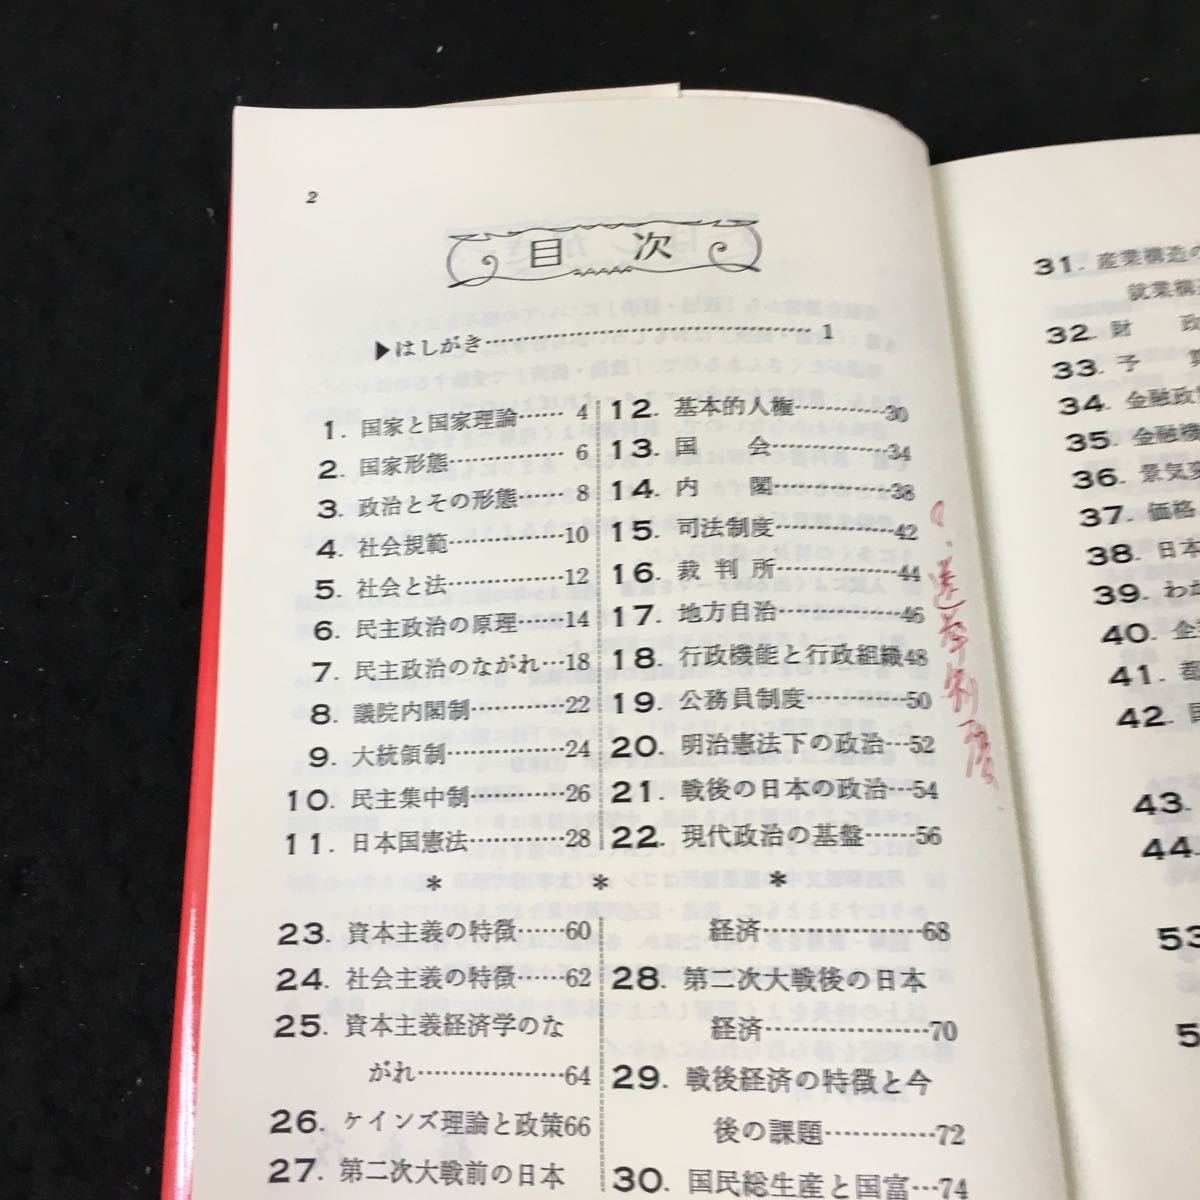 2
目次
▶はしがき…… 1
1. 国家と国家理論…… 4
2. 国家形態…… 6
3. 政治とその形態…… 8
4. 社会規範……10
5. 社会と法……12
6. 民主政治の原理……14
7. 民主政治のながれ…18
8. 議院内閣制……22
9. 大統領制……24
10. 民主集中制……26
11. 日本国憲法……28
12. 基本的人権……30
13. 国会……34
14. 内閣……38
15. 司法制度……42
16. 裁判所……44
17. 地方自治……46
18. 行政機能と行政組織48
19. 公務員制度……50
20. 明治憲法下の政治…52
21. 戦後の日本の政治…54
22. 現代政治の基盤……56
選挙制度
* * *
23. 資本主義の特徴……60
24. 社会主義の特徴……62
25. 資本主義経済学のな
がれ……64
26. ケインズ理論と政策66
27. 第二次大戦前の日本
経済……68
28. 第二次大戦後の日本
経済……70
29. 戦後経済の特徴と今
後の課題……72
30. 国民総生産と国富…74
31. 産業構造の
就業構造
32. 財政
33. 予算
34. 金融政
35. 金融機
36. 景気変
37. 価格
38. 日本
39. わが
40. 企
41. 都
42. 国
43.
44.
53
5